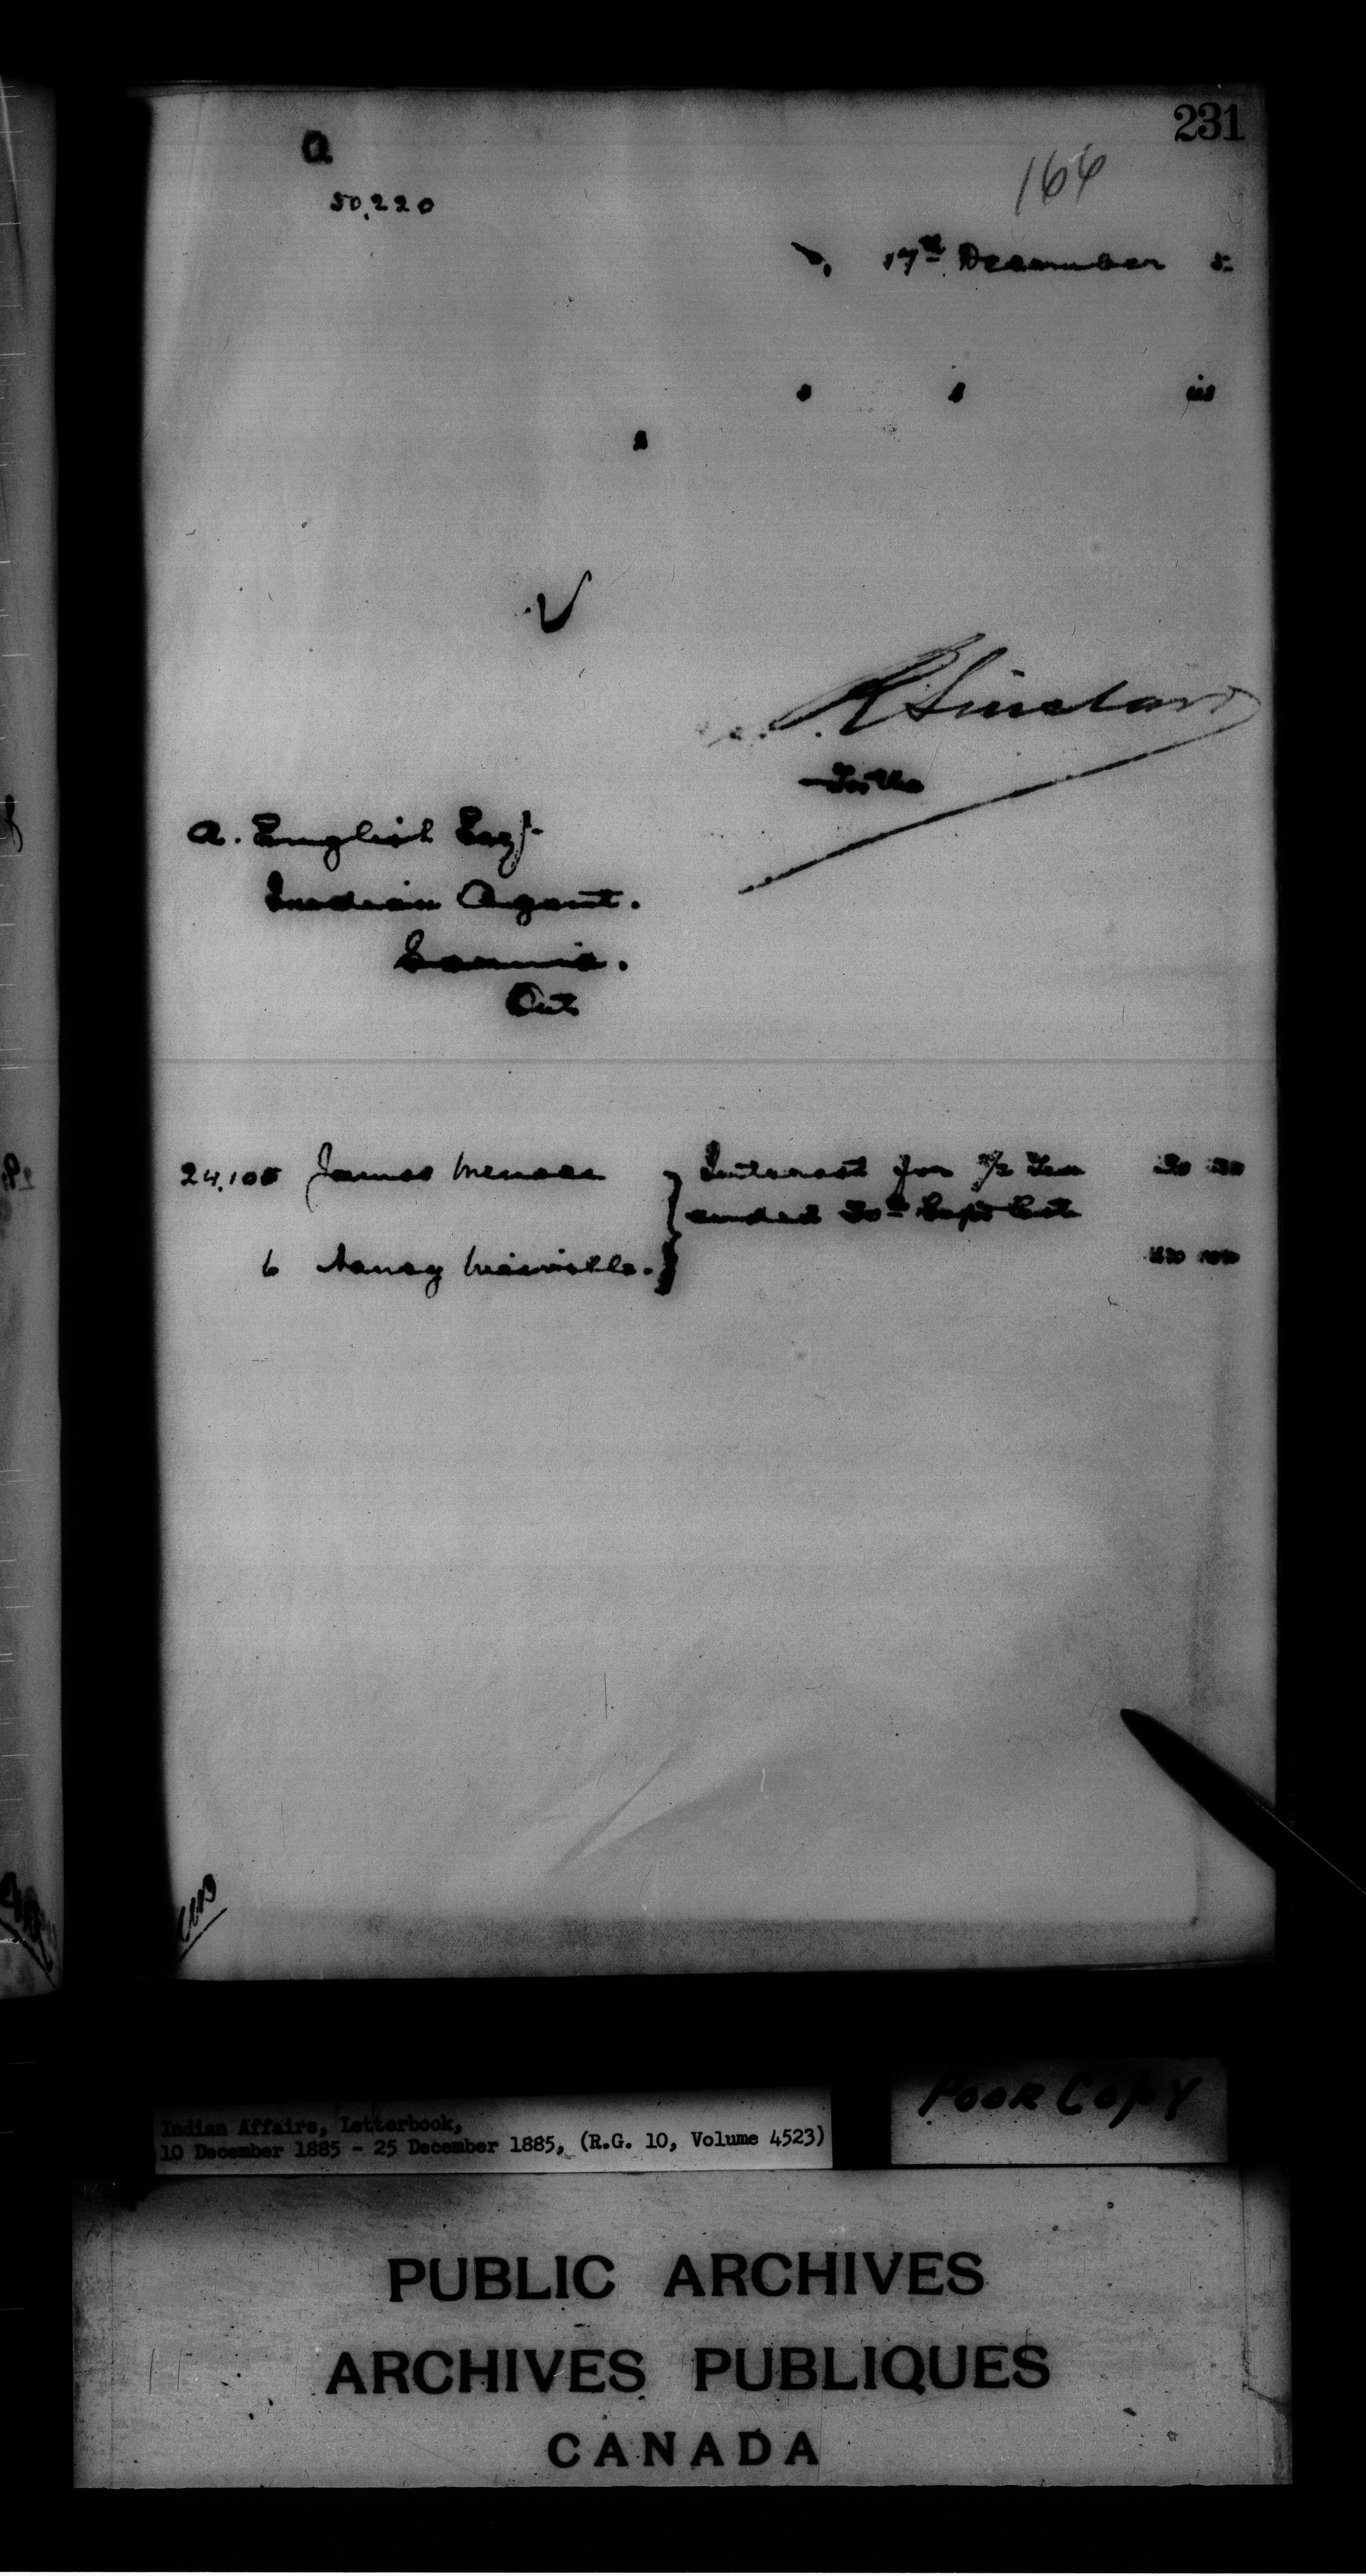 231
a
50,220
166
17th December 5
s s is
s
R Sinclair
For the
A. English Esq.
Indian Agent.
Sarnia.
Ont
24,105 James Menass } Interest for 1/2 Year
ended 30th Sept last
6 Nancy
Indian Affairs, Letterbook,
10 December 1885 - 25 December 1885, (R.G. 10, Volume 4523)
POOR COPY
PUBLIC ARCHIVES
ARCHIVES PUBLIQUES
CANADA